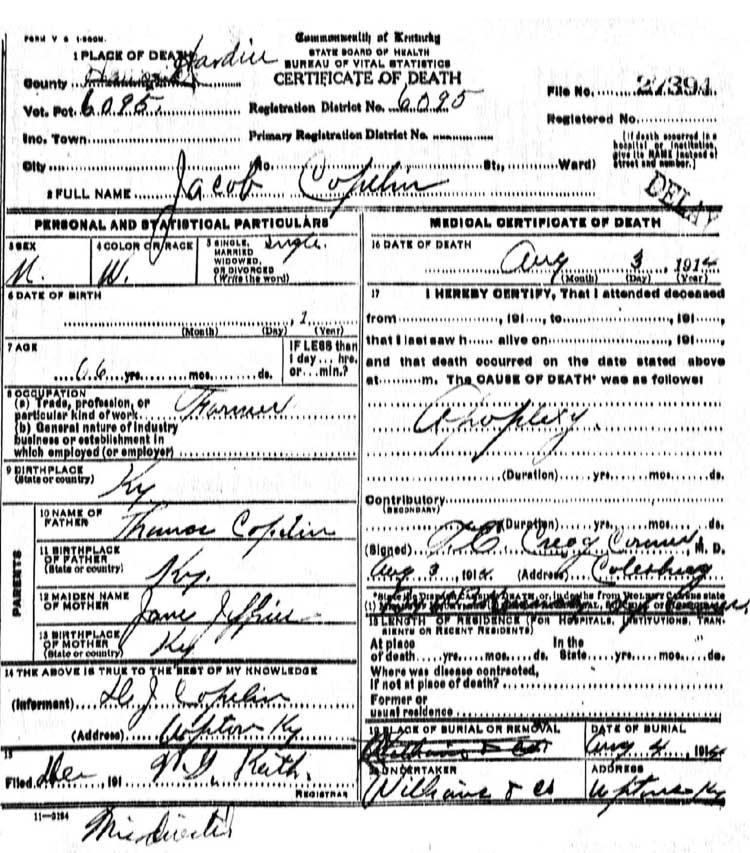 FORM V S 1-500M.
Commonwealth of Kentucky
STATE BOARD OF HEALTH
BUREAU OF VITAL STATISTICS
CERTIFICATE OF DEATH
1 PLACE OF DEATH
Hardin
County
Vot. Pct. 6095.
Inc. Town
City
Registration District No. 6095
Primary Registration District No.
(No. St., Ward)
File No. 22394
Registered No.
[If death occurred in a
hospital or institution,
give its NAME instead of
street and number.]
2 FULL NAME Jacob Copelin
DELAY
PERSONAL AND STATISTICAL PARTICULARS
3 SEX
M.
4 COLOR OR RACE
W.
5 SINGLE,
MARRIED
WIDOWED,
OR DIVORCED
(Write the word)
Single.
6 DATE OF BIRTH
, 1
(Month) (Day) (Year)
7 AGE
66 yrs. mos. ds.
IF LESS than
1 day... hrs.
or... min.?
8 OCCUPATION
(a) Trade, profession, or
particular kind of work Farmer
(b) General nature of industry
business or establishment in
which employed (or employer)
9 BIRTHPLACE
(State or country)
Ky
PARENTS
10 NAME OF
FATHER
Thomas Copelin
11 BIRTHPLACE
OF FATHER
(State or country)
Ky.
12 MAIDEN NAME
OF MOTHER
Jane
13 BIRTHPLACE
OF MOTHER
(State or country)
Ky
14 THE ABOVE IS TRUE TO THE BEST OF MY KNOWLEDGE
(Informant) J Copelin
(Address) Upton Ky
15
Filed Dec 191 Keith.
REGISTRAR
11-3184
MEDICAL CERTIFICATE OF DEATH
16 DATE OF DEATH
Aug 3, 1914
(Month) (Day) (Year)
17 I HEREBY CERTIFY, That I attended deceased
from , 191 , to , 191 ,
that I last saw h alive on , 191 ,
and that death occurred on the date stated above
at m. The CAUSE OF DEATH* was as follows:
Apoplexy.
(Duration) yrs. mos. ds.
Contributory
(SECONDARY)
(Duration) yrs. mos. ds.
(Signed) M. D.
Aug 3, 1914 (Address) Colesburg
18 LENGTH OF RESIDENCE (FOR HOSPITALS, INSTITUTIONS, TRAN-
SIENTS OR RECENT RESIDENTS)
At place In the
of death yrs. mos. ds. State yrs. mos. ds.
Where was disease contracted,
If not at place of death?
Former or
usual residence
19 PLACE OF BURIAL OR REMOVAL
DATE OF BURIAL
Aug 4, 1914
20 UNDERTAKER
Williams & Co
ADDRESS
Upton Ky